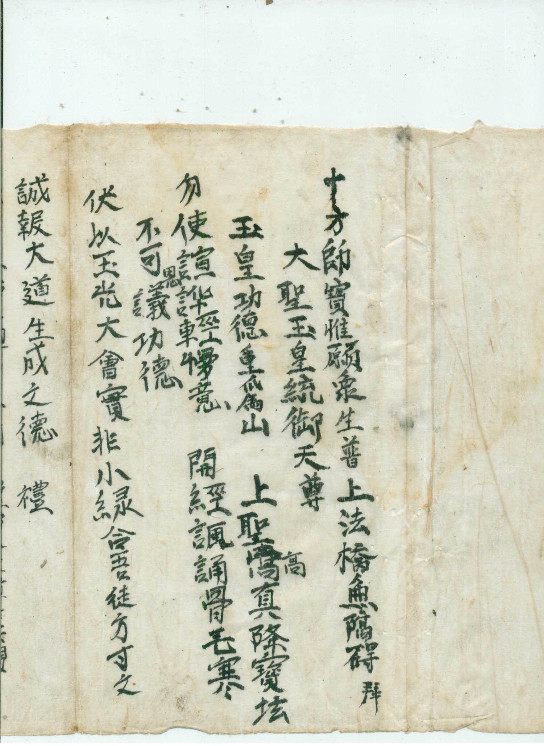 十方師寶惟願眾生普上法橋無隔碍 拜
大聖玉皇統御天尊
玉皇功德重為山 上聖高真降寶坛
勿使喧华輕慢意 開經諷誦骨毛寒
不可思議功德
伏以玉光大會實非小緣合吾徒方寸之
誠報大道生成之德 禮